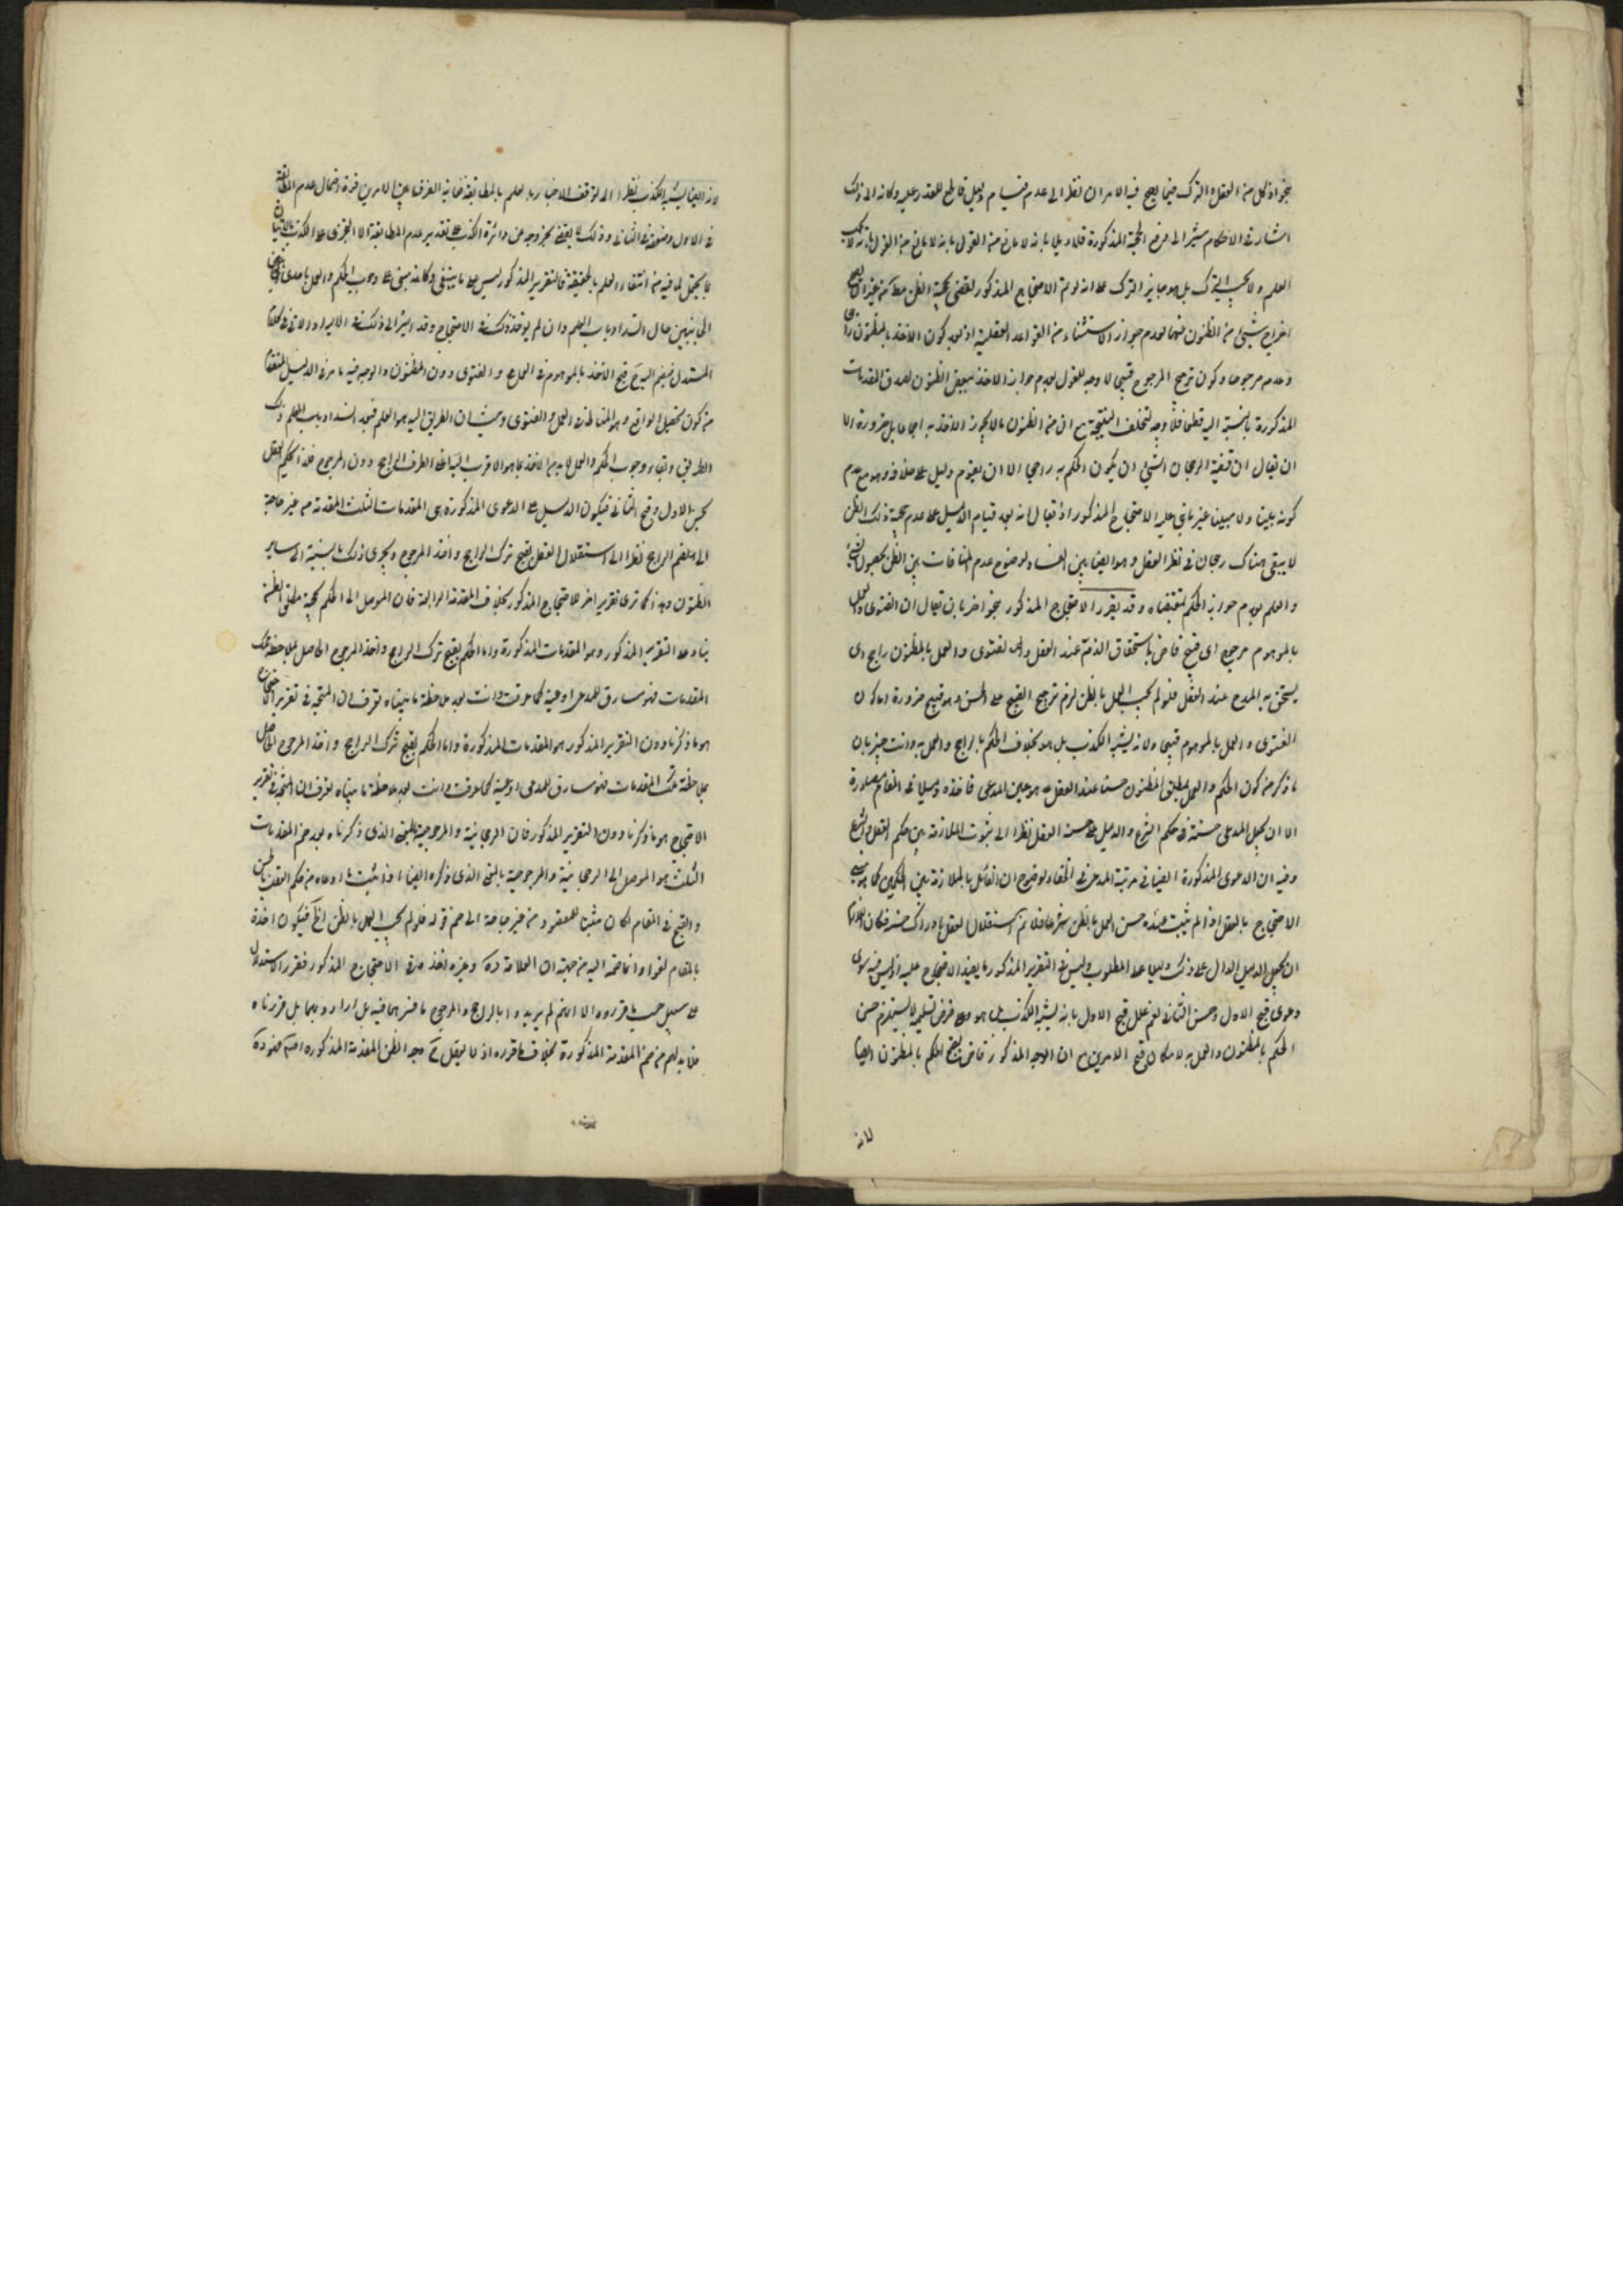 بجواز كل من الفعل والترك فيما يصح فيه الامران نظرا الى عدم قيام دليل قاطع للعذر عليه وكانه الى ذلك
اشار في الاحكام مشيرا الى فرض الحجة المذكورة قلا ديلا بانه لا مانع من القول بانه لا يجب
العلم ولا يجب الترك بل هو جايز الترك على انه لو تم الاحتجاج المذكور لقضى بحجية الظن مط من غير ان يصح
اخراج شيء من الظنون عنها لعدم جواز الاستثناء من القواعد العقلية اذ بعد كون الاخذ بالمظنون راجحا
وعدمه مرجوحا وكون ترجيح المرجوح قبيحا لا وجه للقول بعدم جواز الاخذ ببعض الظنون لصدق المقدمات
المذكورة بالنسبة اليه قطعا فلا وجه لتخلف النتيجة مع ان من الظنون ما لا يجوز الاخذ به اجماعا بل ضرورة الا
ان يقال ان قضية الرجحان الشيء ان يكون الحكم به راجحا الا ان يقوم دليل على خلافه وهو مع عدم
كونه بينا ولا مبينا غير مانع عليه الاحتجاج المذكور اذ يقال انه بعد قيام الدليل على عدم حجية ذلك الظن
لا يبقى هناك رجحان في نظر العقل وهو ايضا بين الفساد لوضوح عدم المنافات بين الظن بحصول الشيء
والعلم بعدم جواز الحكم بمقتضاه وقد يقرر الاحتجاج المذكور بنحو اخر بان يقال ان الفتوى والعمل
بالموهوم مرجوح اى قبيح قاض باستحقاق الذم عند العقل والفتوى والعمل بالمظنون راجح اى
يستحق به المدح عند العقل فلو لم يجب العمل بالظن لزم ترجيح القبيح على الحسن وهو قبيح ضرورة اما كون
الفتوى والعمل بالموهوم قبيحا ولانه يشبه الكذب بل هو بخلاف الحكم بالراجح والعمل به وانت خبير بان
ما ذكر من كون الحكم والعمل بمطلق المظنون حسنا عند العقل هو عين المدعى فاخذه دليلا في المقام مصادرة
الا ان يجعل المدعى حسنه في حكم الشرع والدليل على حسنه العقل نظرا الى ثبوت الملازمة بين حكم العقل والشرع
وفيه ان الدعوى المذكورة ايضا في مرتبة المدعى في الخفاء لوضوح ان القائل بالملازمة بين الحكمين كما هو مبنى
الاحتجاج بالعقل اذا لم يثبت عنده حسن العمل بالظن شرعا فلا يتم استقلال العقل بادراك حسنه فكان اللازم
ان يجعل الدليل الدال على ذلك دليلا على المطلوب وليس في التقرير المذكور ما يفيد الاحتجاج عليه اذ ليس فيه سوى
دعوى قبح الاول وحسن الثاني نعم علل قبح الاول بانه يشبه الكذب بل هو هو وعلى فرض تسليمه لا يستلزم حسن
الحكم بالمظنون والعمل به لامكان قبح الامرين مع ان الوجه المذكور قاض بقبح الحكم بالمظنون ايضا
لانه
لانه ايضا يشبه الكذب نظرا الى توقف الاخبار بالعلم بالمطابقة غاية الفرق بين الامرين قوة احتمال عدم المطابقة
في الاول وضعفه في الثاني وذلك لا يقضى بخروجه عن دائرة الكذب على تقدير عدم المطابقة الا التجزى على الكذب بالاتيان
بما يحتمل لما فيه من انتفاء العلم بالحقيقة فالتقرير المذكور ليس على ما ينبغى وكانه مبنى على وجوب الحكم والعمل باحدى
الجانبين حال انسداد باب العلم وان لم يؤخذ ذلك في الاحتجاج وقد اشير الى ذلك في الايراد الاتى في كلام
المستدل فيضم اليه ح قبح الاخذ بالموهوم في العمل والفتوى دون المظنون والوجه فيه ما مر في الدليل المتقدم
من كون تحصيل الواقع هو المناط في العمل والفتوى وحيث ان الطريق اليه هو العلم فبعد انسداد باب العلم وذلك
الطريق وبقاء وجوب الحكم والعمل لا بد من الاخذ بما هو الاقرب اليه اعنى الطرف الراجح دون المرجوح فلذا يحكم العقل
بحسن الاول وقبح الثاني فيكون الدليل على الدعوى المذكورة هى المقدمات الثلث المتقدمة من غير حاجة
الى ملاحظة الراجح نظرا الى استقلال العقل بقبح ترك الراجح واخذ المرجوح ويجرى ذلك بالنسبة الى ساير
الظنون وهذا كما ترى تقرير اخر للاحتجاج المذكور بخلاف المقدمة الرابعة فان الموصل الى الحكم بحجية مطلق الظن
بناء على التقرير المذكور وهو المقدمات المذكورة واما الحكم بقبح ترك الراجح واخذ المرجوح الحاصل بملاحظة تلك
المقدمات فهو مساوق للمدعى او عينه كما عرفت وانت بعد ملاحظة ما بيناه تعرف ان المتجه في تقرير الاحتجاج
هو ما ذكرنا دون التقرير المذكور هو المقدمات المذكورة واما الحكم بقبح ترك الراجح واخذ المرجوح الحاصل
بملاحظة تلك المقدمات فهو مساوق للمدعى او عينه كما عرفت وانت بعد ملاحظة ما بيناه تعرف ان المتجه في تقرير
الاحتجاج هو ما ذكرنا دون التقرير المذكور فان الرجحانية والمرجوحية بالمعنى الذى ذكرناه بعد ضم المقدمات
الثلث هو الموصل الى الرجحانية والمرجوحية بالمعنى الذى ذكره ايضا اذ لو ثبت ما ادعاه من حكم العقل بالحسن
والقبح في المقام لكان مثبتا للمقصود من غير حاجة الى ضم قوله فلو لم يجب العمل بالظن الخ فيكون اخذه
بالمقام لغوا وانما ضمه اليه من جهة ان العلامة ره وغيره اخذ في الاحتجاج المذكور فقرر الاستدلال
على سبيل حسب ما قرروه الا انهم لم يريدوا بالراجح والمرجوح ما فسرهما فيه بل ارادوا بهما بل قررناه
فلا بد لهم من ضم المقدمة المذكورة بخلاف ما قرره اذ لا يعقل ح وجه لضم المقدمة المذكورة